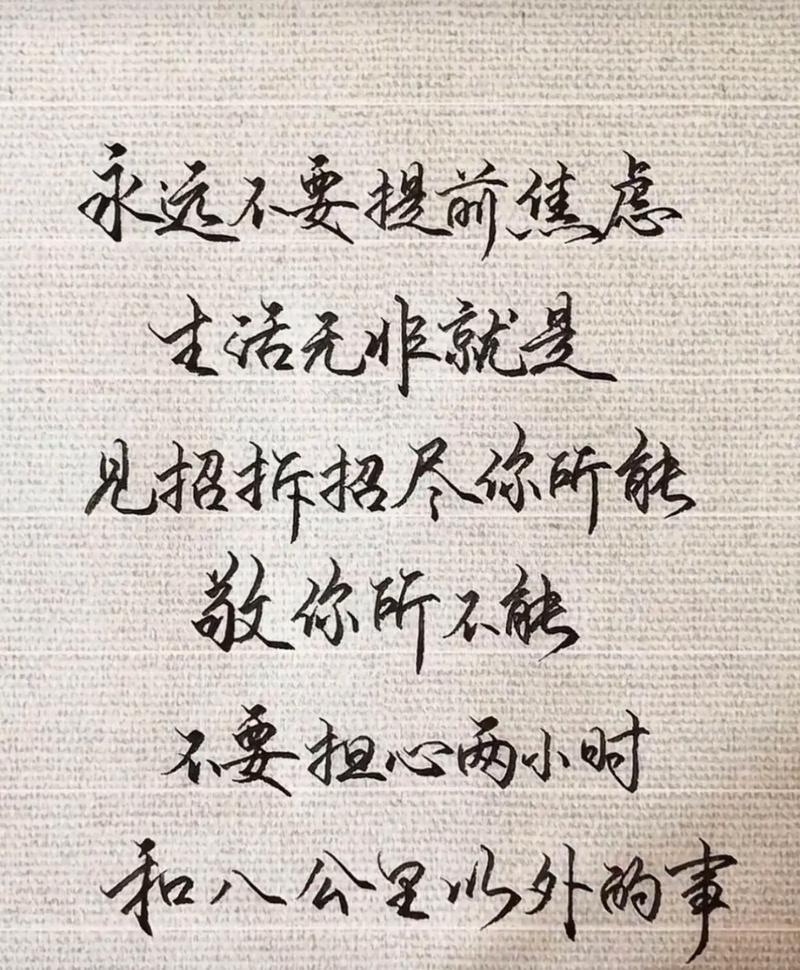 永远不要提前焦虑
生活无非就是
见招拆招尽你所能
敬你所不能
不要担心两小时
和八公里以外的事